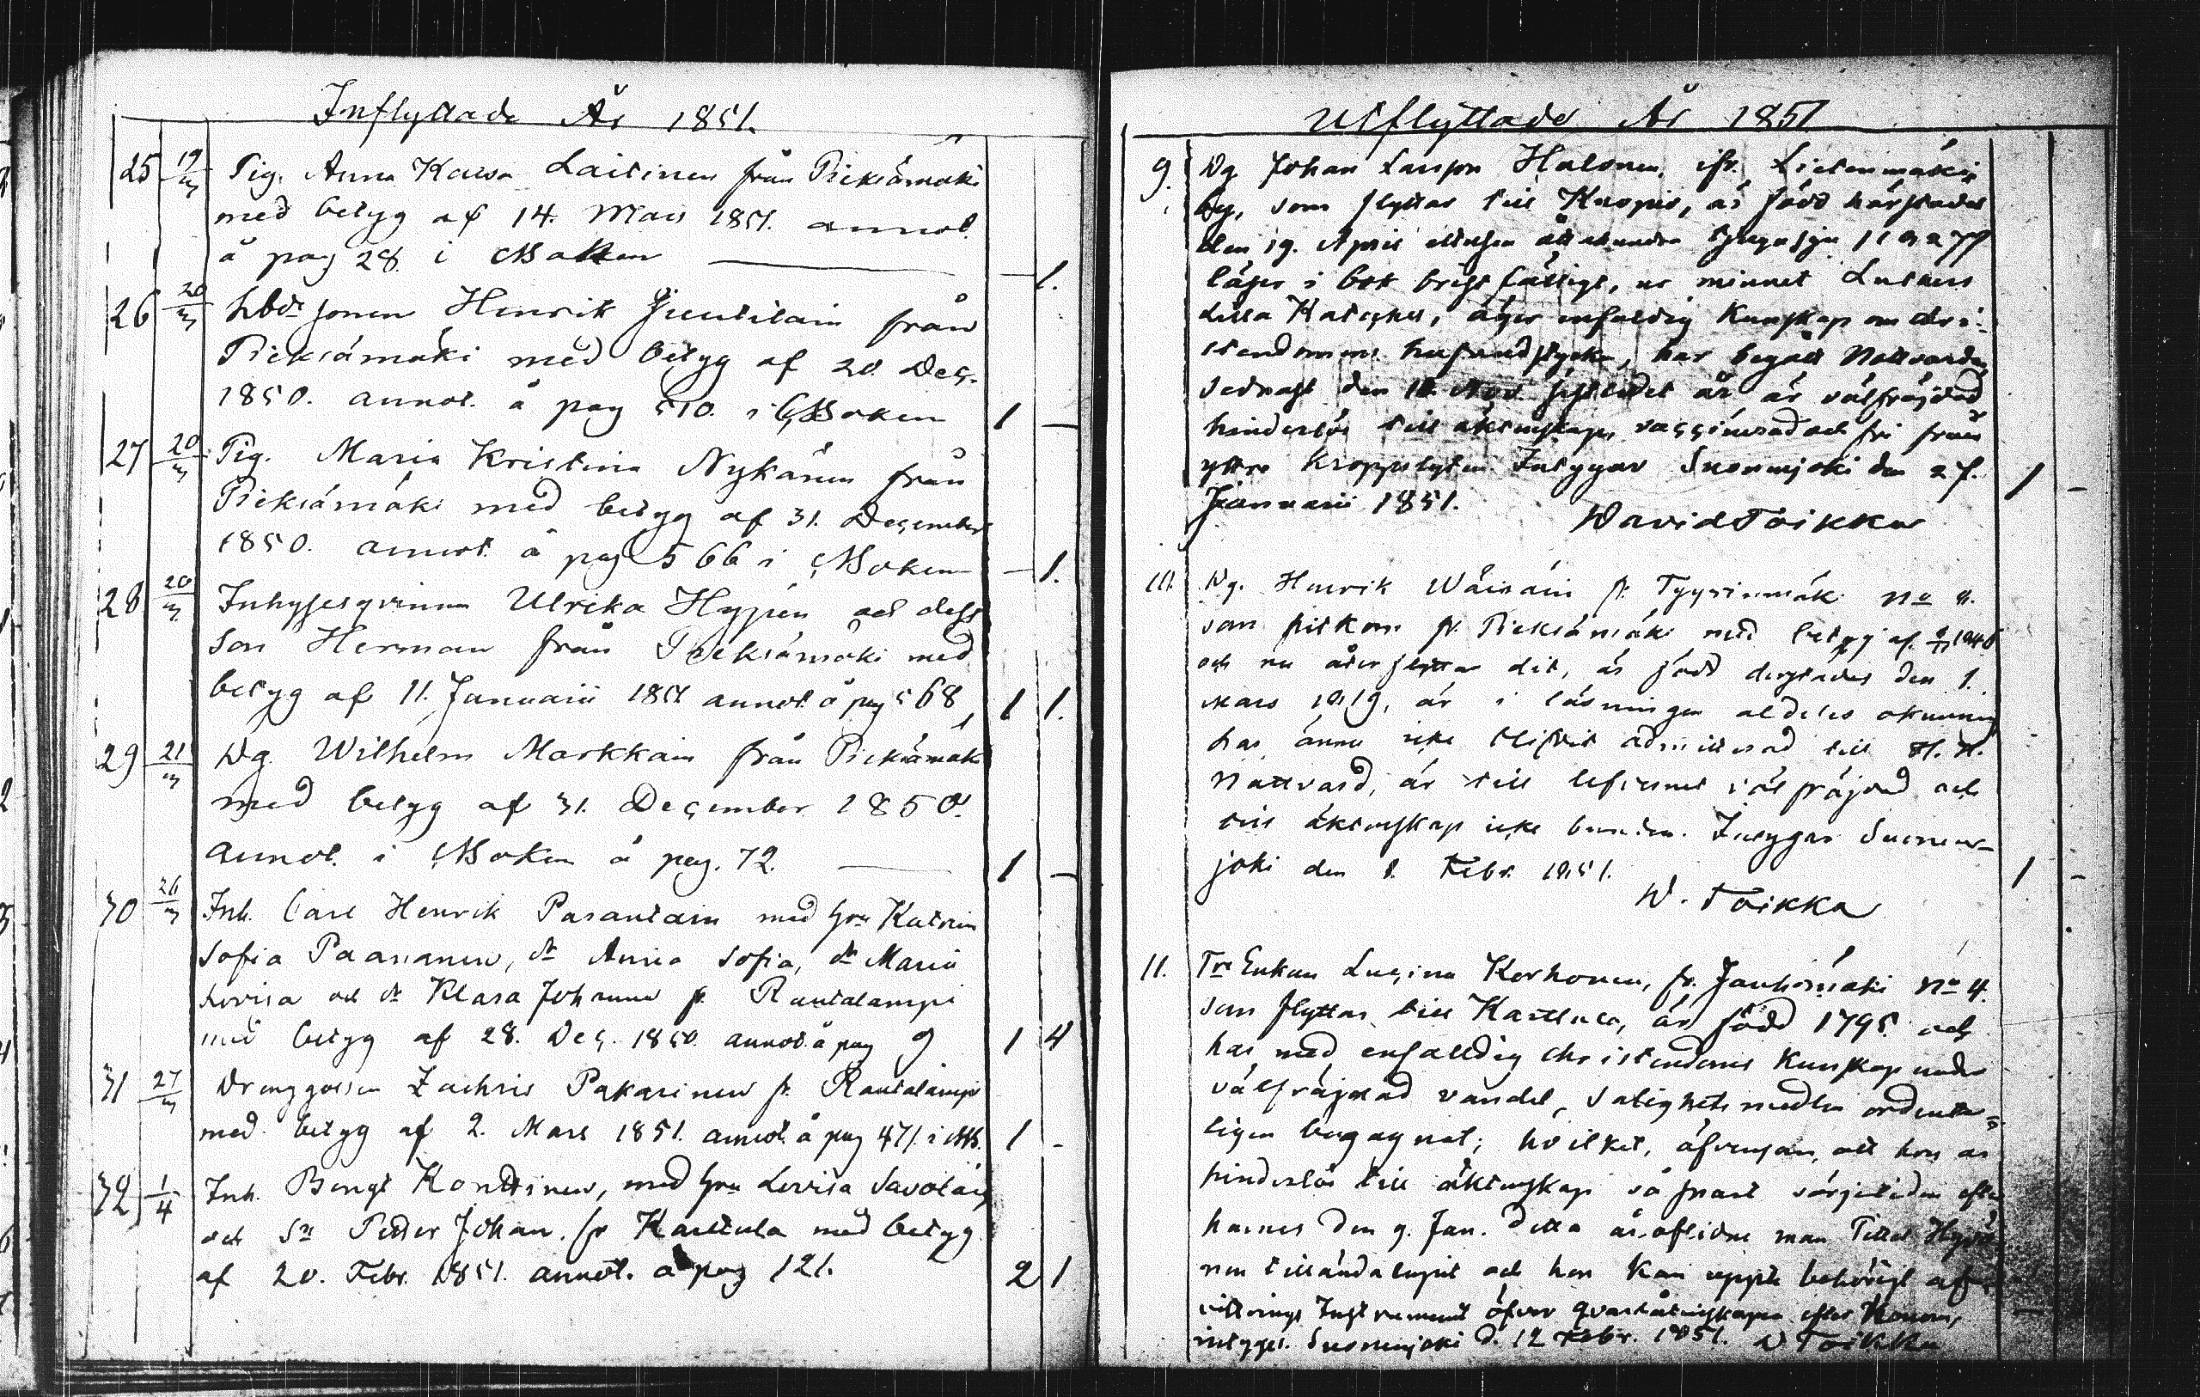 Inflyttade År 1851.
25 19/3 Pig. Anna Kaisa Laitinen från Pieksämäki
med betyg af 14. Mars 1851. annot.
å pag 28. i MBoken — 1.
26 20/3 Lbdr sonen Henrik från
Pieksämäki med betyg af 20 Dec.
1850. annot. å pag 510. i MBoken 1 —
27 20/3 Pig. Maria Kristina Nykänen från
Pieksämäki med betyg af 31. December
1850. annot. å pag 566 i MBoken — 1.
28 20/3 Inhysesqvinnan Ulrika Hyÿien och dess
son Herman från Pieksämäki med
betyg af 11. Januarii 1851 annot å pag 568 1 1.
29 21/3 Dg. Wilhelm Markkain från Pieksämäki
med betyg af 31. December 1850.
annot. i MBoken å pag. 72. 1 —
30 26/3 Inh. Carl Henrik Parantain med hru Katrin
Sofia Paananen, dr Anna Sofia, dr Maria
Lovisa och dr Klara Johanna fr. Rautalampi
med betyg af 28. Dec. 1850. annot. å pag 9 1 4
31 27/3 Drenggossen Zachris Pakarinen fr. Rautalampi
med betyg af 2. Mars 1851. annot. å pag 471. i MB. 1 -
32 1/4 Inh. Bengt Konttinen, med hru Lovisa Savolain
och Sn Petter Johan. fr Karttula med betyg
af 20. Febr. 1851. annot. å pag 121. 2 1
Utflyttade År 1851
9. Dg Johan Larsson Halonen, ifr. Lietenmäki
by, som flyttar till Kuopio, är född härstädes
den 19. April adertonhundra tjugusju 1827
läser i bok bristfälligt, ur minnet Luthers
Lilla Kateches, äger enfaldig kunskap om chri-
stendomens hufvudstycken, har begått Nattvarden
sednast den Nov. sistledet år är välfräjdad
hinderlös till äktenskap, vaccinerad och fri från
yttre kroppslyten. Intygar Suonenjoki den 27.
Januarii 1851. 1 -
David Toikka
10. Dg. Henrik Wäisäin fr. Tyyrinmäki No 8.
som hitkom fr. Pieksämäki med betyg af
och nu återflyttar dit, är född derstädes den 1.
Mars 1819, är i läsningen aldeles okunnig
har ännu icke blifvit admitterad till H. H.
Nattvard, är till lefvernet välfräjdad och
till äktenskap icke bunden. Intygar Suonen-
joki den 8. Febr. 1851. 1 -
D. Toikka
11. Enkan Lucina Korhonen, fr. Jauhomäki No 4.
som flyttar till Karttula, är född 1795 och
har med enfalldig christendoms kunskap under
välfräjdad vandel, salighets medlen ordente-
ligen begagnat; hvilket, äfvensom, att hon är
hinderlös till äktenskap så snart sörjetiden efter
hennes den 9. Jan. detta år aflidne man
nen tilländalupit och hon kan uppte behörigt af-
vittrings Instrument öfver qvarlåtenskapen efter honom,
intygas. Suonenjoki d. 12 Febr. 1851. D Toikka